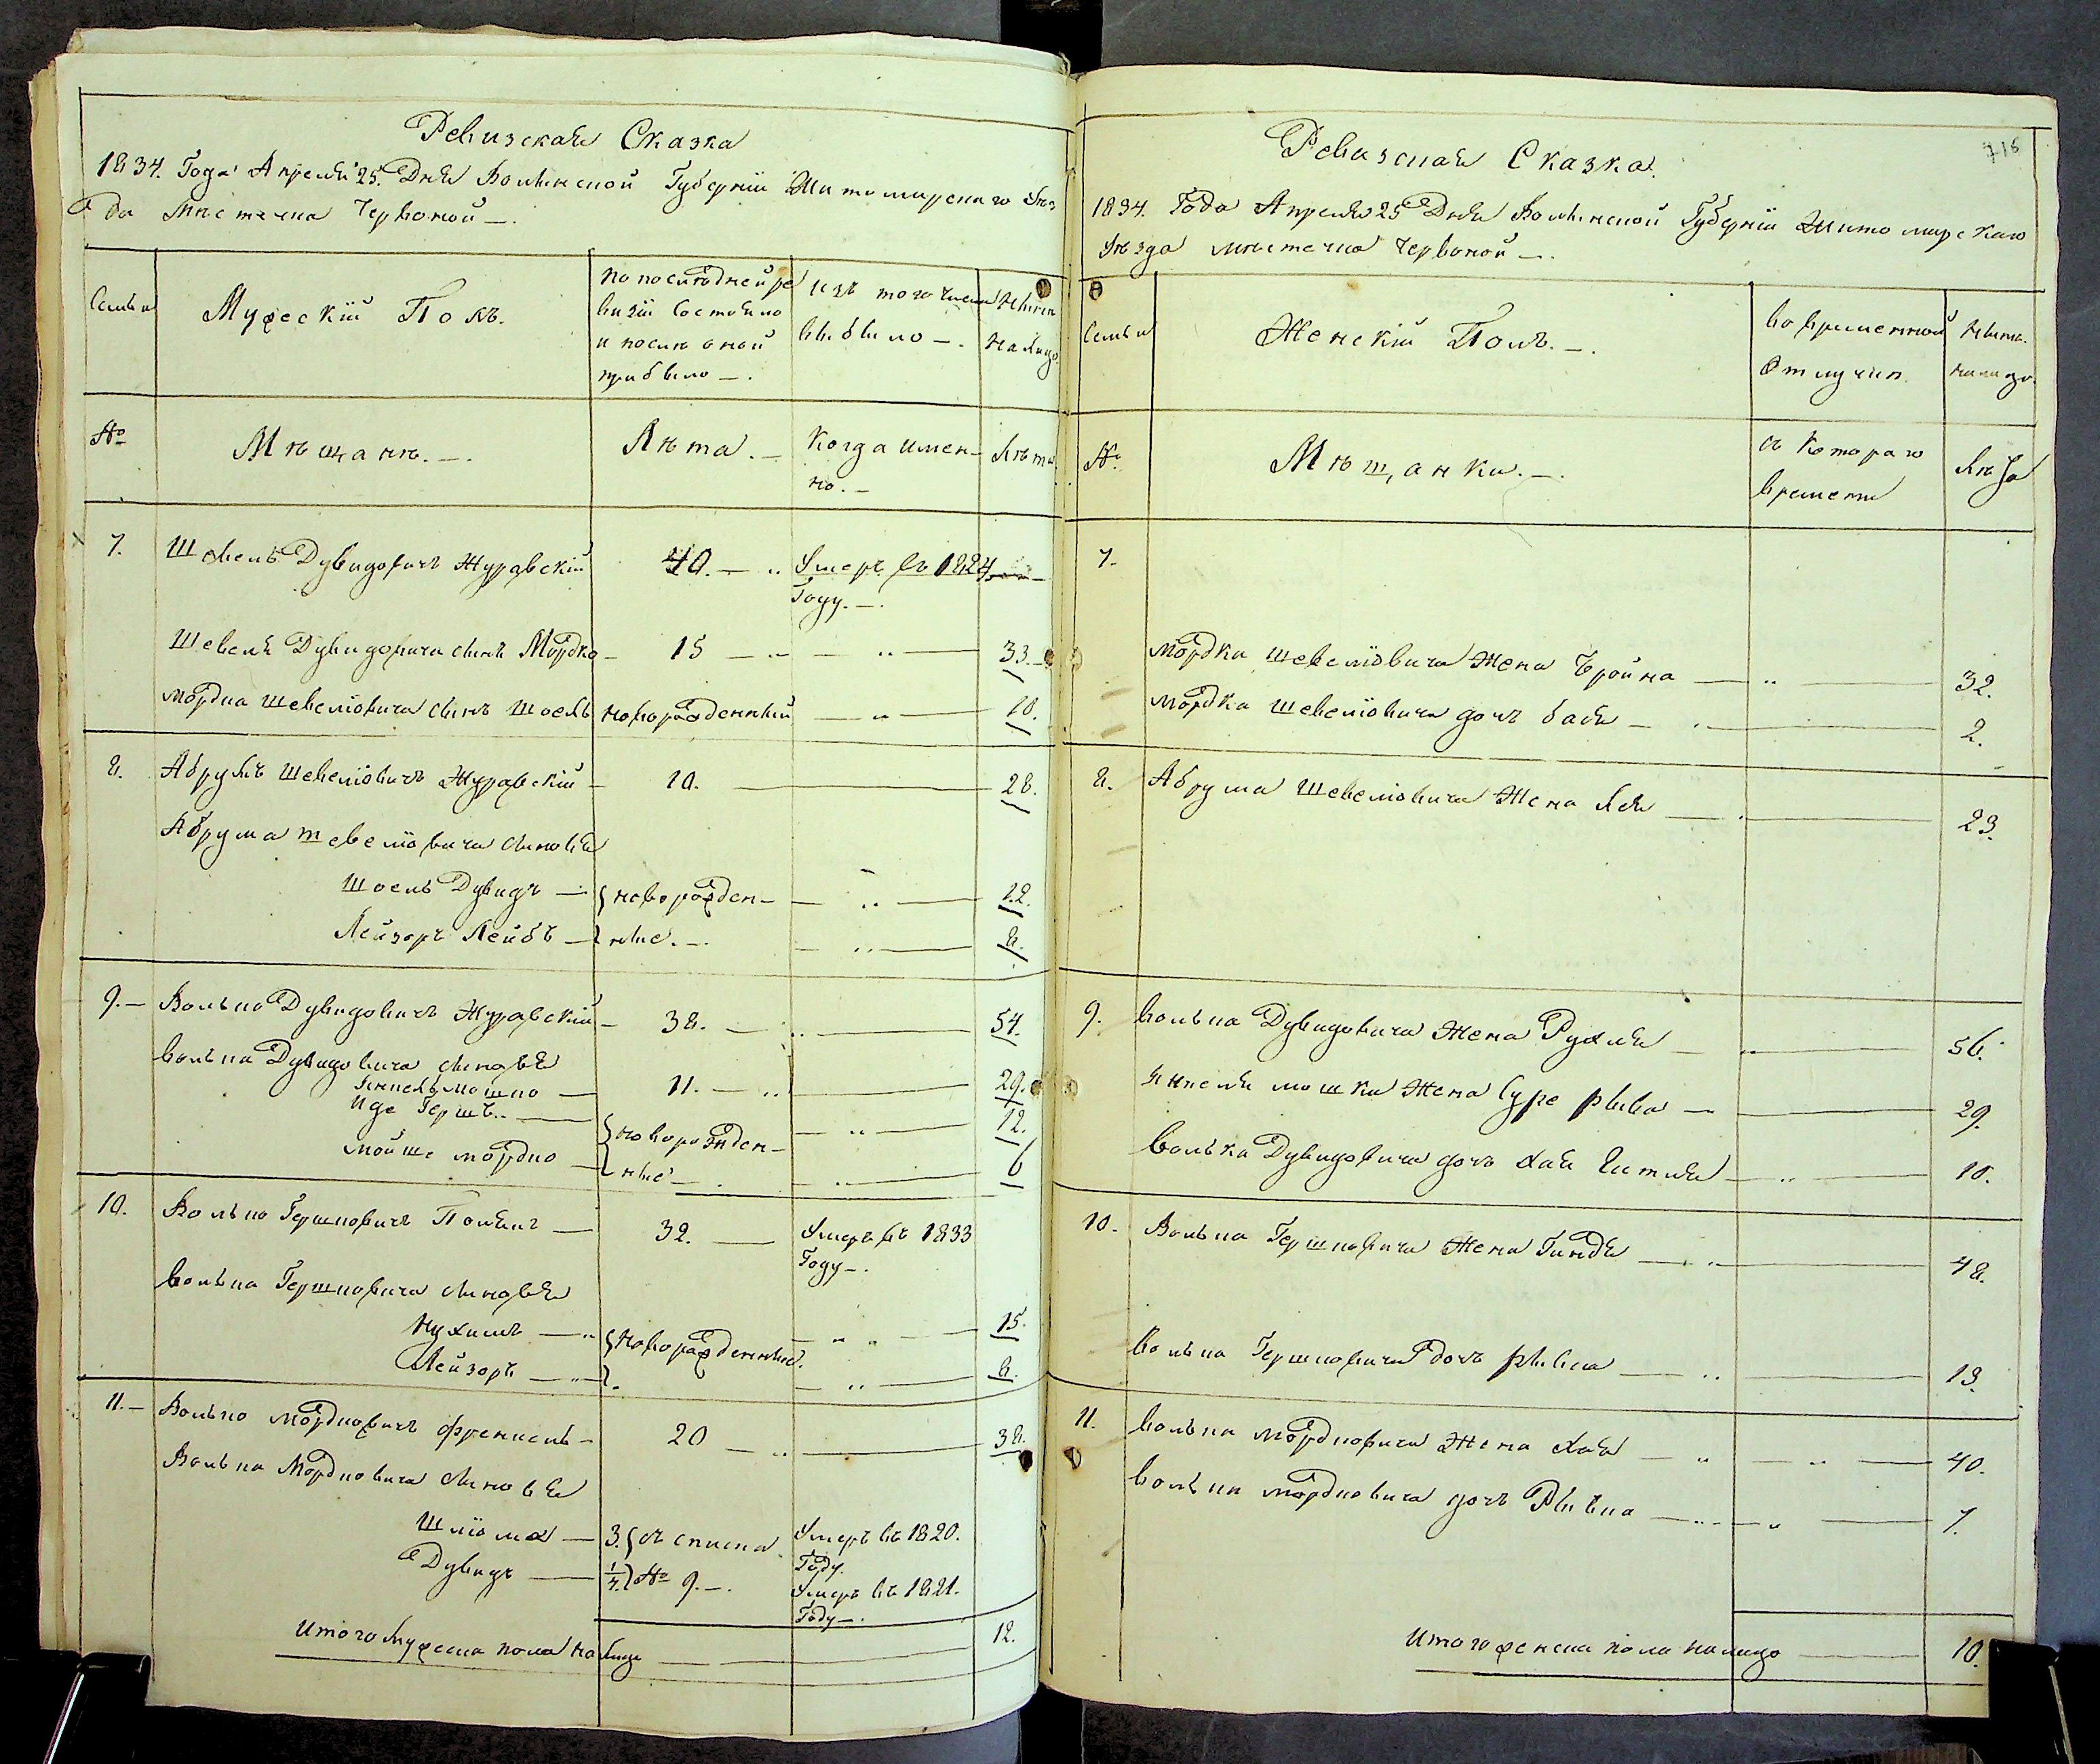 Ревизская Сказка
1834. Года Апреля 25. Дня Волынской Губернiи Житомирскаго Уез
да Местечка Червоной —.
Семьи
Мужескiй Полъ.
По последней ре
визiи состояло
и после оной
прибыло —.
Изъ того числа
выбыло —.
Ныне
на лицо
№
Мещане. —.
Лета. —
Когда имен-
но. —
Лета
7.
Шевель Дувидовичъ Журавскiй
40. — „
Умеръ въ 1824
Году. —.
Шевеля Дувидовича сынъ Мордко —
15 — „ — „ —
33. —
Мордка Шевелiовича сынъ Шоель
новорожденный — „ —
10.
8.
Абрумъ Шевелiовичъ Журавскiй —
10. —
28.
Абрума Шевелiовича сыновья
Шоель Дувидъ —
новорожден- — „ —
12.
Лейзоръ Лейбъ —
ные. —. — „ —
8.
9. —
Волько Дувидовичъ Журавскiй —
38. — „ —
54.
Волька Дувидовича сыновья
Мошко —
11. — „ —
29.
Иде Гершъ. —
новорожден- — „ —
12.
Мойше Мордко —
ные —. — „ —
6
10.
Волько Гершковичъ —
32. —
Умеръ въ 1833
Году —.
Волька Гершковича сыновья
Нухимъ — „
новорожденные. — „ —
15.
Лейзоръ — „ — „ —
8.
11. —
Волько Мордковичъ Френкель —
20 — „ —
38.
Волька Мордковича сыновья
Шлiома — 3.
съ списка
Умеръ въ 1820.
Году.
Дувидъ — 1/4.
№ 9. —.
Умеръ въ 1821.
Году —.
Итого мужеска пола на лицо —
12.
715
Ревизская Сказка.
1834. Года Апреля 25 Дня Волынской Губернiи Житомирскаго
Уезда местечка Червоной —.
Семьи
Женскiй Полъ. —.
Во временной
Отлучке
Ныне
на лицо.
№.
Мещанки. —.
съ Котораго
времени
Лета
7.
Мордка Шевелiовича Жена Бройна — „ —
32.
Мордка Шевелiовича дочь Бася — „ —
2.
8.
Абрума Шевелiовича Жена Лея —
23.
9.
Волька Дувидовича Жена Рухля — „ —
56.
Мошки Жена Суре Рывка —
29.
Волька Дувидовича дочь Хая Гитля — „ —
10.
10.
Волька Гершковича Жена Гиндя — „ —
48.
Волька Гершковича дочь Рывка — „ —
13.
11.
Волька Мордковича Жена Хая — „ — „ —
40.
Волька Мордковича дочь Рывка — „ — „ —
7.
Итого женска пола на лицо —
10.